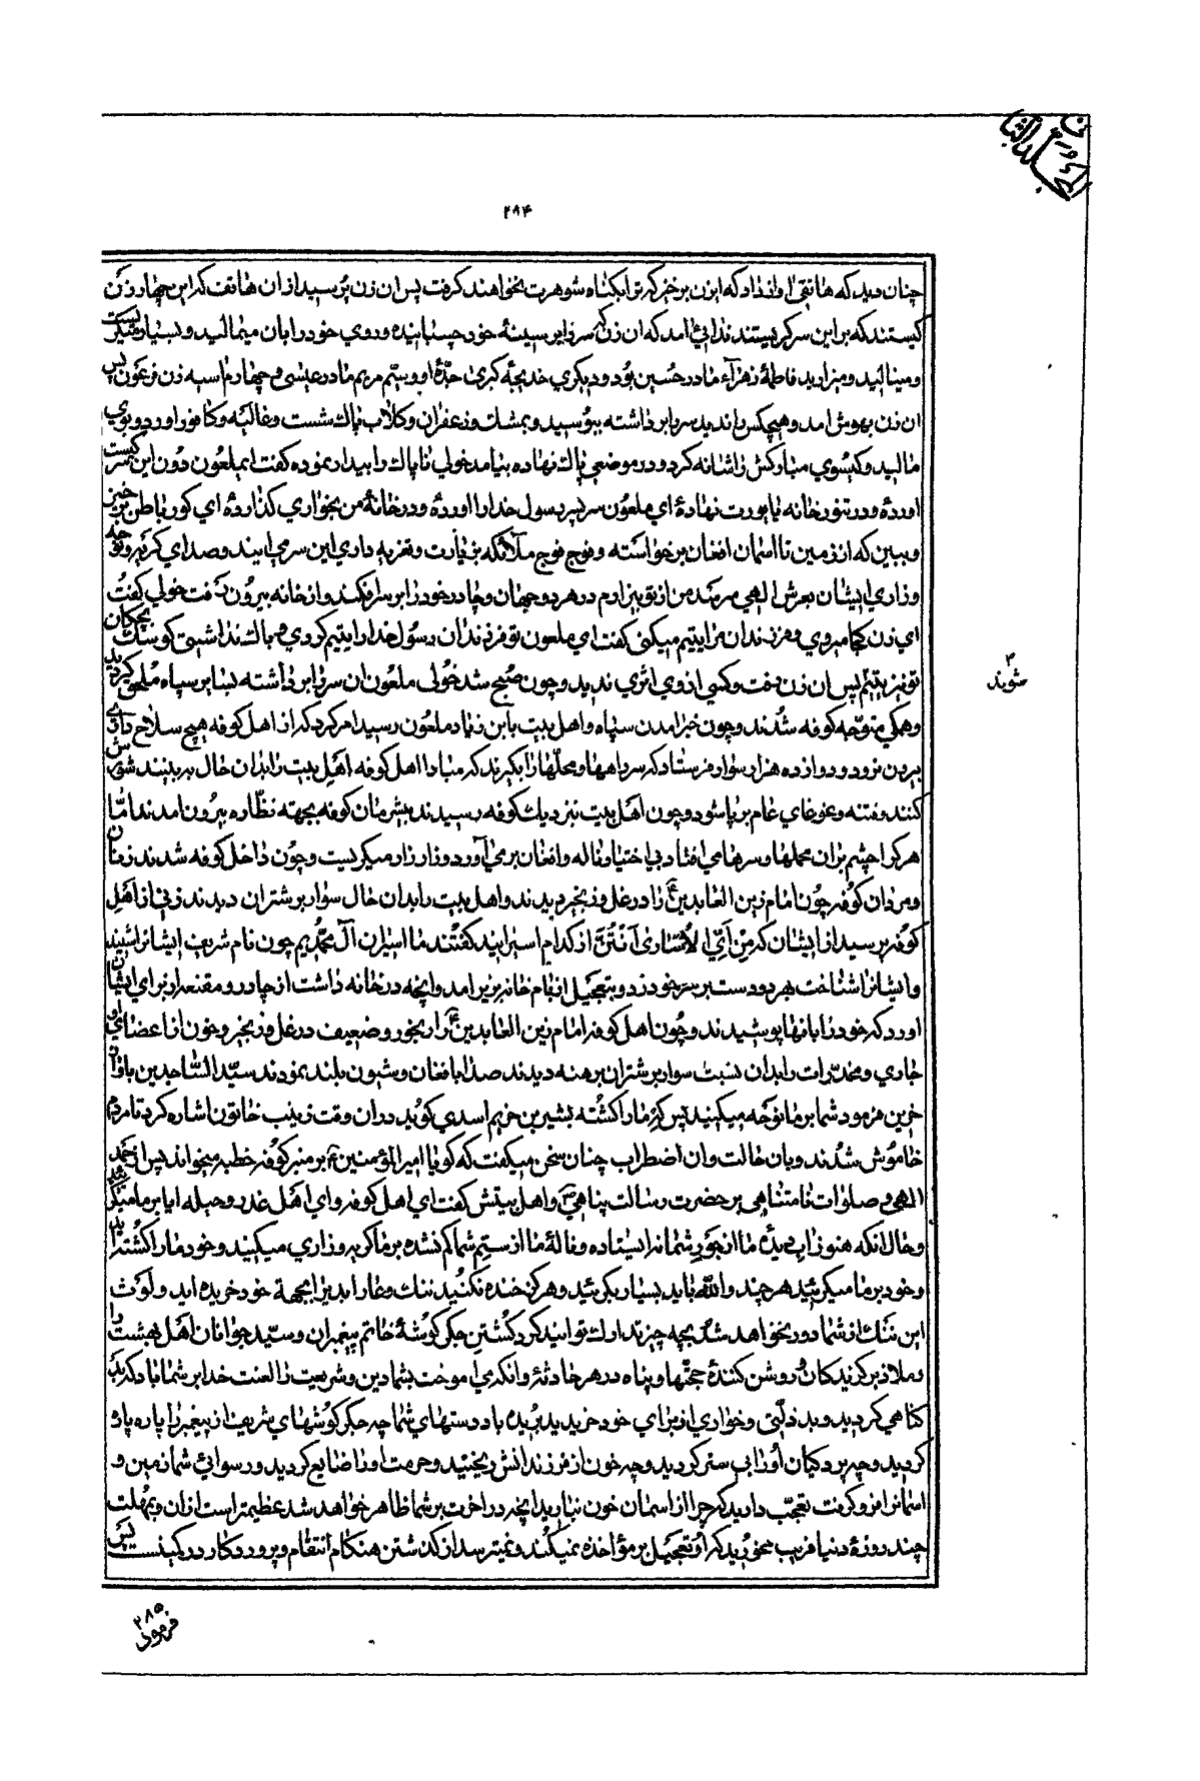 المجلد الثانی
۲۹۴
چنان دید که هاتفی اواز داد که ای زن برخیز که ترا بکناه شوهرت نخواهند کرفت پس ان زن پرسید از ان هاتف که این چهار زن
کیستند که بر این سر کریستند ندائی امد که ان زن که سر را بر سینهٔ خود چسبانیده و روی خود را بان میمالید و بسیار میکریست
و مینالید و میزارید فاطمهٔ زهراء مادر حسین بود و دیکری خدیجهٔ کبری جدّهٔ او و سیّم مریم مادر عیسی و چهارم اسیه زن فرعون پس
ان زن بهوش امد و هیچکس را ندید سر را برداشته ببوسید و بمشک و زعفران و کلاب پاک شست و غالیه و کافور اورد و بر وی
مالید و کیسوی مبارکش را شانه کرد و در موضعی پاک نهاده بیامد خولی ناپاک را بیدار نموده کفت ایملعون دون این سر کیست
اوردهٔ و در تنور خانه نهادهٔ ای ملعون سر پسر رسول خدا را اوردهٔ و در خانهٔ من بخواری کذاردهٔ ای کور باطن برخیز
و ببین که از زمین تا اسمان افغان برخواسته و فوج فوج ملائکه بزیارت و تعزیه داری این سر می ایند و صدای کریه و نوحه
و زاری ایشان بعرش الهی میرسد من از تو بیزارم در هر دو جهان و چادر خود را بر سر افکند و از خانه بیرون رفت خولی کفت
ای زن کجا میروی و فرزندان مرا یتیم میکنی کفت ای ملعون تو فرزندان رسول خدا را یتیم کردی و باک نداشتی کو سک بچکان
تو نیز یتیم شوند پس ان زن رفت و کسی از وی اثری ندید و چون صبح شد خولی ملعون ان سر را برداشته بسپاه ملحق کردید
و همکی متوجه کوفه شدند و چون خبر امدن سپاه و اهل بیت بابن زیاد ملعون رسید امر کرد که از اهل کوفه هیچ سلاح داری
بیرون نرود و دوازده هزار سوار فرستاد که سر راهها و محلّها را بکیرند که مبادا اهل کوفه اهل بیت را بدان حال ببینند شورش
کنند و فتنه و غوغای عام برپا شود و چون اهل بیت نزدیک کوفه رسیدند بیشرمان کوفه بجهته نظّاره بیرون امدند امّا
هر کرا چشم بر ان محملها و سرها می افتاد بی اختیار ناله و افغان برمی اورد و زار زار میکریست و چون داخل کوفه شدند زنان
و مردان کوفه چون امام زین العابدین را در غل و زنجیر دیدند و اهل بیت را بدان حال سوار بر شتران دیدند زنی از اهل
کوفه پرسید از ایشان که مِنْ اَیِّ الْاُسَارَی اَنْتُنَّ از کدام اسیرانید کفتند ما اسیران آل محمّدیم چون نام شریف ایشانرا شنید
و ایشانرا شناخت بهر دو دست بر سر خود زد و بتعجیل از بام خانه بزیر امد و انچه در خانه داشت از چادر و مقنعه از برای ایشان
اورد که خود را بانها پوشیدند و چون اهل کوفه امام زین العابدین را رنجور و ضعیف در غل و زنجیر و خون از اعضای او
جاری و مخدّرات را بدان نسبت سوار بر شتران برهنه دیدند صدا بافغان و شیون بلند نمودند سیّد السّاجدین باواز
حزین فرمود شما بر ما نوحه میکنید پس که ما را کشته بشیر بن خزیم اسدی کوید در ان وقت زینب خاتون اشاره کرد تا مردم
خاموش شدند و بان حالت و ان اضطراب چنان سخن میکفت که کویا امیر المؤمنین بر منبر کوفه خطبه میخواند پس از حمد
الهی و صلوات نامتناهی بر حضرت رسالت پناهی و اهل بیتش کفت ای اهل کوفه و ای اهل غدر و حیله ایا بر ما میکرئید
و حال انکه هنوز اب دیدهٔ ما از جور شما نایستاده و نالهٔ ما از ستم شما کم نشده بر ما کریه و زاری میکنید و خود ما را کشتید
و خود بر ما میکرئید هر چند والله باید بسیار بکرئید و هرکز خنده نکنید ننک و عار ابدیرا بجهة خود خریده اید و لوث
این ننک از شما دور نخواهد شد بچه چیز تدارک توانید کرد کشتن جکر کوشهٔ خاتم پیغمبران و سیّد جوانان اهل بهشت را
و ملاذ برکزیدکان و روشن کنندهٔ حجّتها و پناه در هر حادثهٔ و انکه می اموخت بشما دین و شریعت را لعنت خدا بر شما باد که بد
کناهی کردید و بد ذلّتی و خواری از برای خود خریدید بریده باد دستهای شما چه جکر کوشهای شریف از پیغمبر را پاره پاره
کردید و چه پردکیان او را بی ستر کردید و چه خون از فرزندانش ریختید و حرمت او را ضایع کردید و رسوائی شما زمین و
اسمانرا فرو کرفت تعجّب دارید که چرا از اسمان خون ببارید انچه در اخرت بر شما ظاهر خواهد شد عظیمتر است از ان و بمهلت
چند روزهٔ دنیا فریب مخورید که او تعجیل بر مؤاخذه نمیکند و نمیترسد از کذشتن هنکام انتقام و پروردکار در کمینست پس
شوند
۲۸۵
فرمود